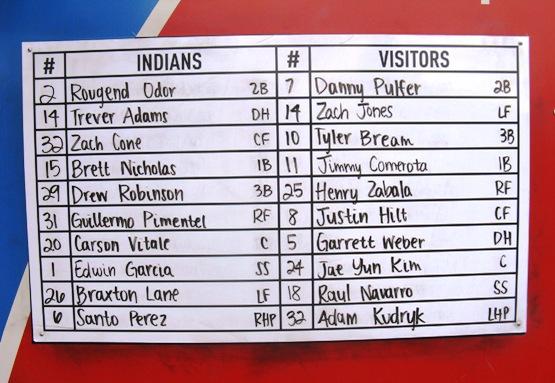 # INDIANS # VISITORS
2 Rougend Odor 2B 7 Danny Pulfer 2B
14 Trever Adams DH 14 Zach Jones LF
32 Zach Cone CF 10 Tyler Bream 3B
15 Brett Nicholas 1B 11 Jimmy Comerota 1B
29 Drew Robinson 3B 25 Henry Zabala RF
31 Guillermo Pimentel RF 8 Justin Hilt CF
20 Carson Vitale C 5 Garrett Weber DH
1 Edwin Garcia SS 24 Jae Yun Kim C
26 Braxton Lane LF 18 Raul Navarro SS
6 Santo Perez RHP 32 Adam Kudryk LHP